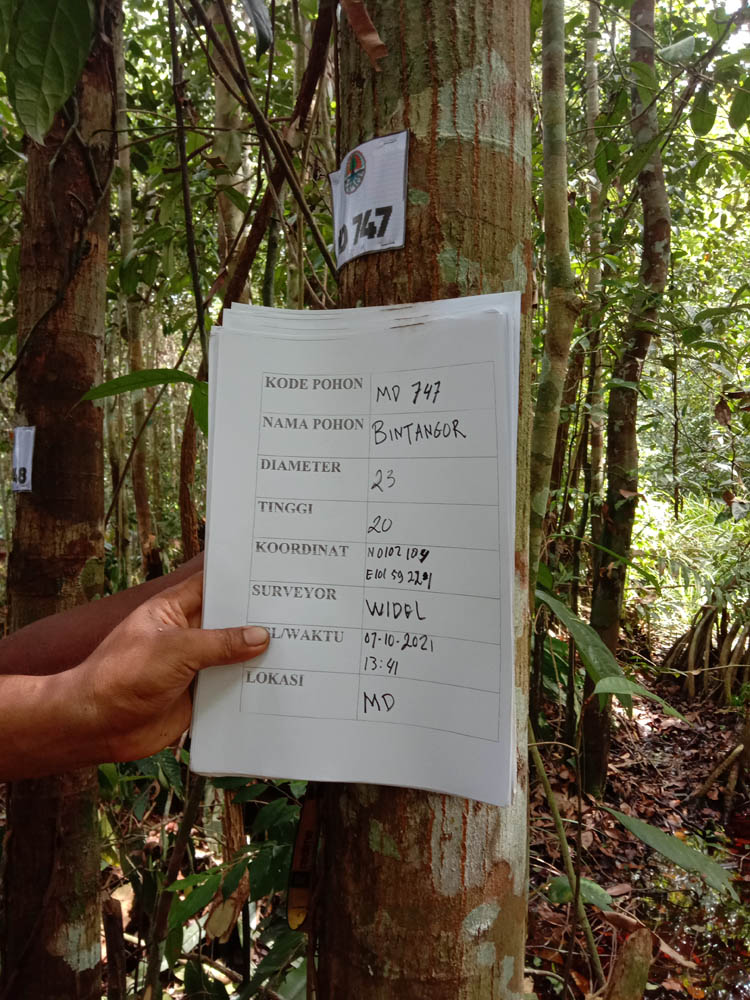 D 747
48
KODE POHON MD 747
NAMA POHON BINTANGOR
DIAMETER 23
TINGGI 20
KOORDINAT N0102 109
E101 59 229
SURVEYOR WIDEL
GL/WAKTU 07-10-2021
13:41
LOKASI MD